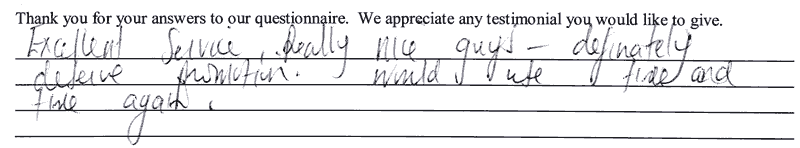 Thank you for your answers to our questionnaire. We appreciate any testimonial you would like to give.
Excellent Service, Really nice guys - definately
deserve promotion. Would use time and
time again.